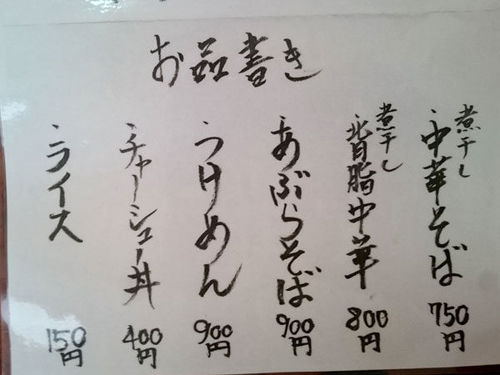 お品書き
煮干し
・中華そば 750円
煮干し
・背脂中華 800円
・あぶらそば 900円
・うけめん 900円
・チャーシュー丼 400円
・ライス 150円